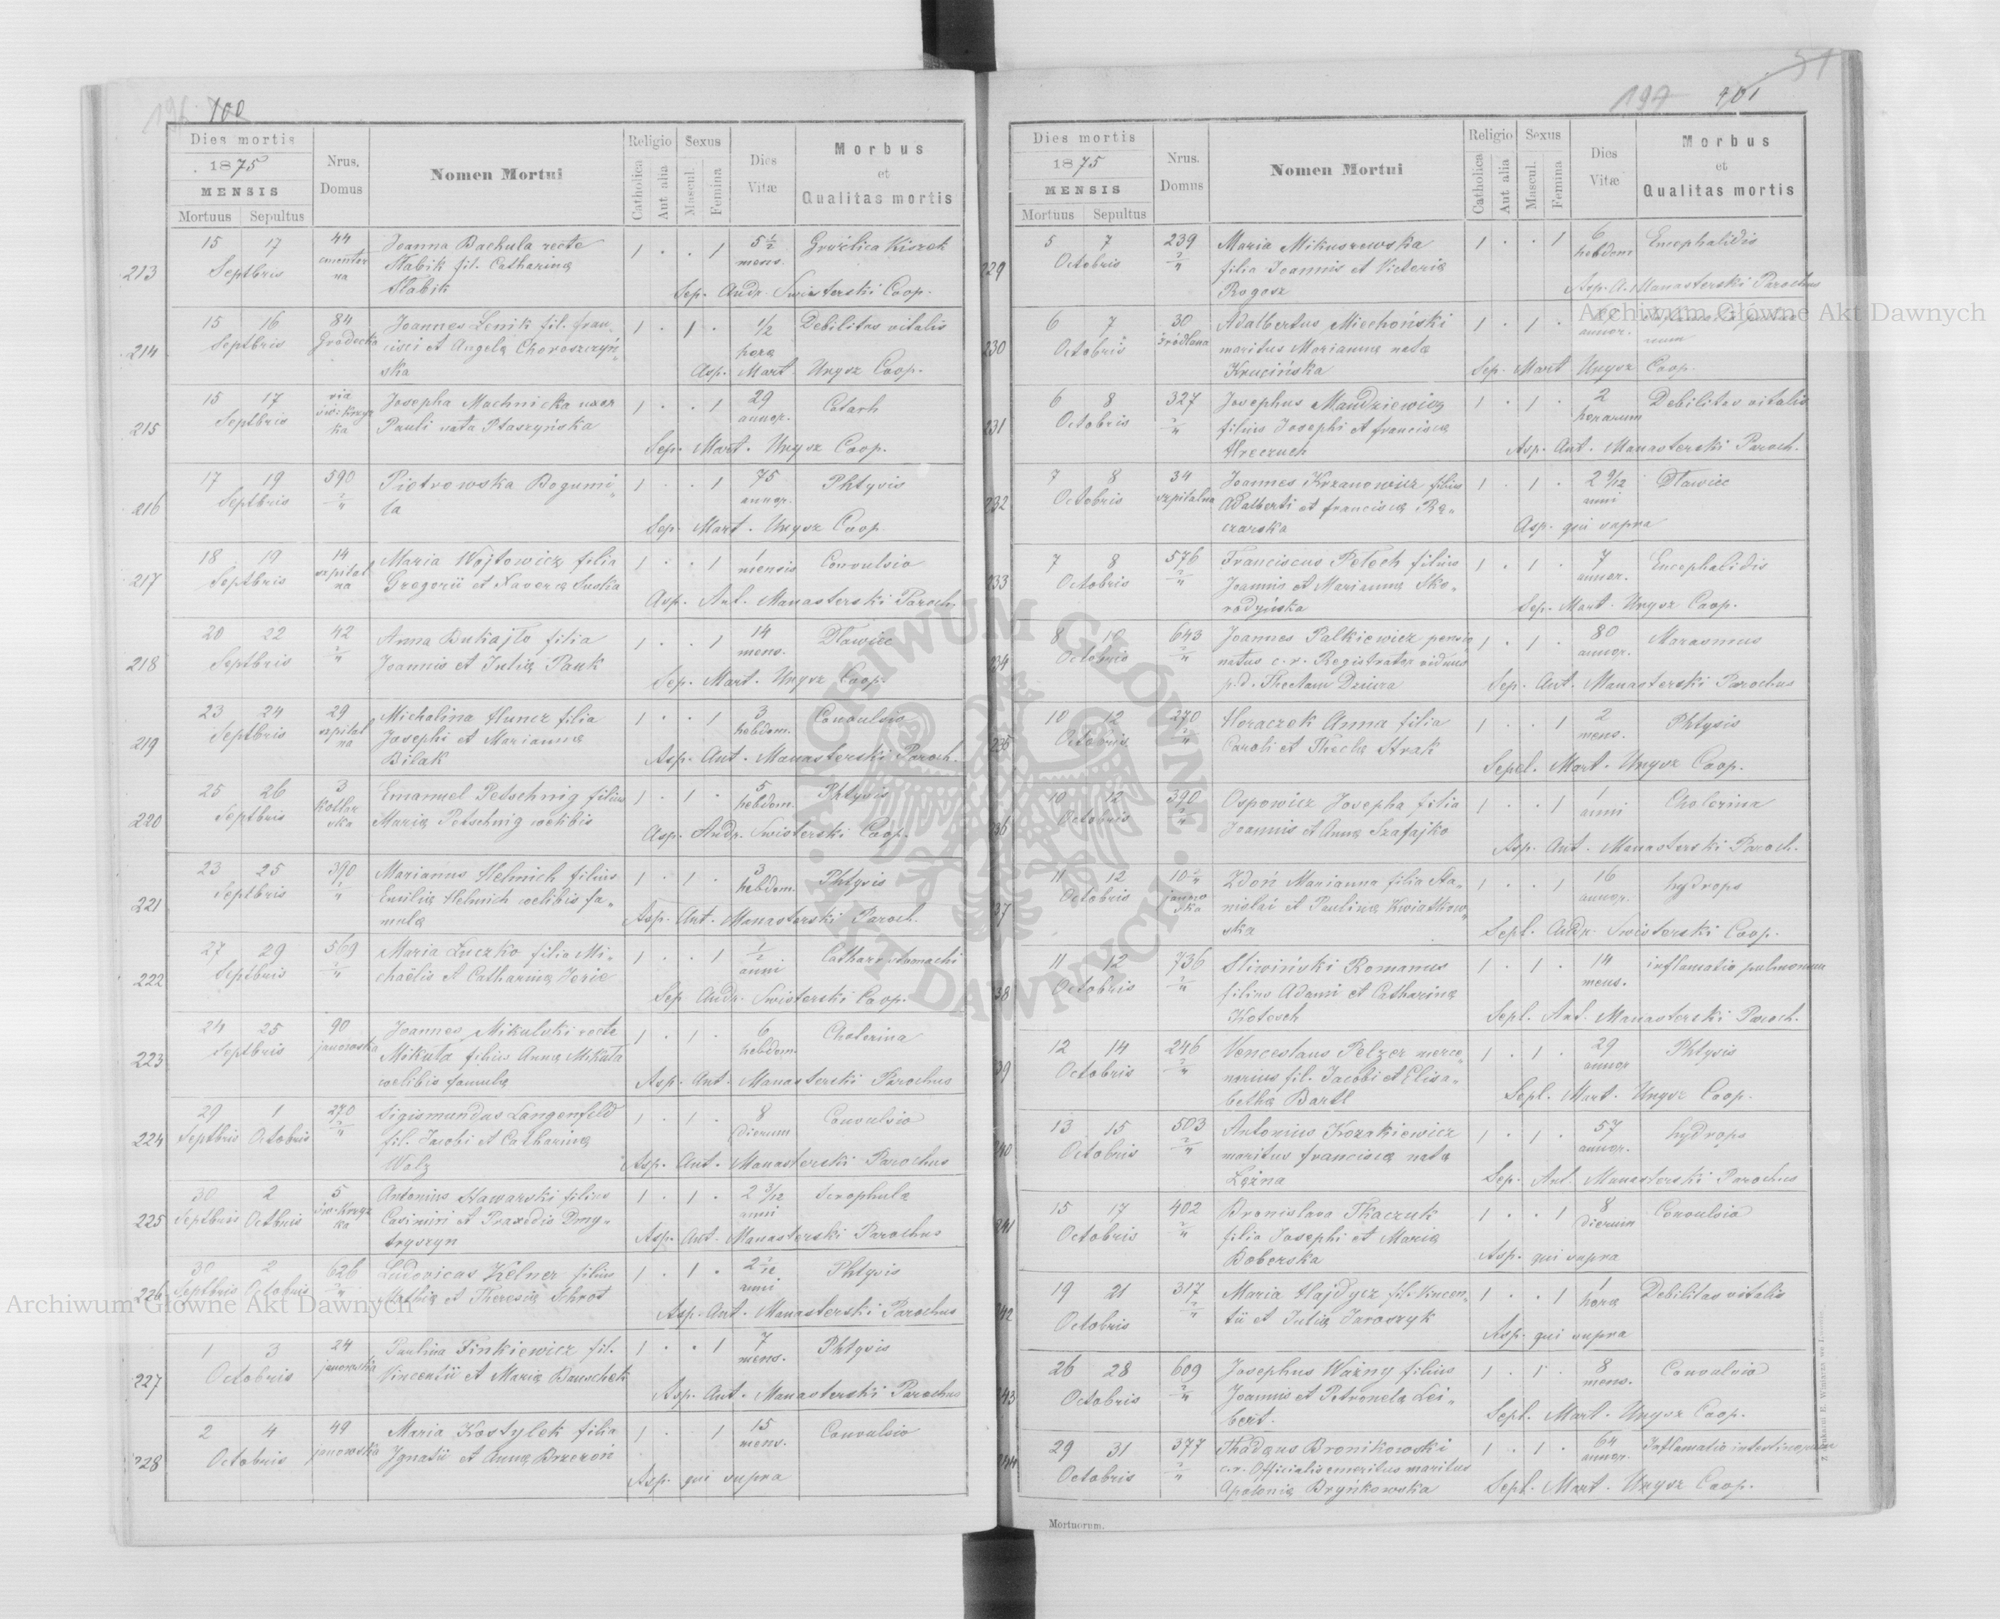 196 100
Dies mortis
1875
MENSIS
Mortuus Sepultus
Nrus. Domus
Nomen Mortui
Religio
Catholica
Aut alia
Sexus
Mascul.
Femina
Dies Vitæ
Morbus
et
Qualitas mortis
213 15 17 Septbris 44 Joanna Bachula recte 1 . . 1 5 1/2 mens. Gruźlica Kiszek
Słabik fil. Catharinæ
Słabik Sep. Andr. Swisterski Coop.
214 15 16 Septbris 84 Gródecka Joannes Lenik fil. Fran- 1 . 1 . 1/2 horæ Debilitas vitalis
cisci et Angelæ Choroszczyń-
ska Asp. Mart Ungvz Coop.
215 15 17 Septbris via Josepha Machnicka uxor 1 . . 1 29 annor. Catarh
Pauli nata Ptaszyńska
Sep. Mart. Ungvz Coop.
216 17 19 Septbris 590 2/4 Piotrowska Bogumi- 1 . . 1 75 annor. Phtysis
la
Sep. Mart. Ungvz Coop.
217 18 19 Septbris 14 szpital na Maria Wojtowicz filia 1 . . 1 1 mensis Convulsio
Gregorii et Xaveræ Suslia
Asp. Ant. Manasterski Paroch.
218 20 22 Septbris 42 2/4 Anna Kukajło filia 1 . . 1 14 mens. Dławiec
Joannis et Juliæ Pauk
Sep. Mart. Ungvz Coop.
219 23 24 Septbris 29 szpital na Michalina Huncz filia 1 . . 1 3 hebdom. Convulsio
Josephi et Mariannæ
Bilak Asp. Ant. Manasterski Paroch.
220 25 26 Septbris 3 Emanuel Petschnig filius 1 . 1 . 5 hebdom. Phtysis
Mariæ Petschnig cœlibis
Asp. Andr. Swisterski Coop.
221 23 25 Septbris 390 1/4 Marianus Helmich filius 1 . 1 . 3 hebdom. Phtysis
Emiliæ Helmich cœlibis fa-
mulæ Asp. Ant. Manasterski Paroch.
222 27 29 Septbris 569 2/4 Maria Łuczko filia Mi- 1 . . 1 1/2 anni Catharr stomachi
chaëlis et Catharinæ
Sep Andr. Swisterski Coop.
223 24 25 Septbris 90 janowska Joannes Mikulski recte 1 . 1 . 6 hebdom. Cholerina
Mikuta filius Annæ Mikuta
cœlibis famulæ Asp. Ant. Manasterski Parochus
224 29 Septbris 1 Octobris 270 2/4 Sigismundus Langenfeld 1 . 1 . 8 dierum Convulsio
fil. Jacobi et Catharinæ
Walz Asp. Ant. Manasterski Parochus
225 30 Septbris 2 Octbris 5 Antonius Hawarski filius 1 . 1 . 2 3/12 anni Scrophulæ
Casimiri et Praxedis Dmy-
tryszyn Asp. Ant. Manasterski Parochus
226 30 Septbris 2 Octobris 626 2/4 Ludovicus Këlner filius 1 . 1 . 2 anni Phtysis
Mathiæ et Theresiæ Schrot
Asp. Ant. Manasterski Parochus
227 1 3 Octobris 24 janowska Paulina Finkiewicz fil. 1 . . 1 7 mens. Phtysis
Vincentii et Mariæ Bauschek
Asp. Ant. Manasterski Parochus
228 2 4 Octobris 49 janowska Maria Kostyłek filia 1 . 1 15 mens. Convulsio
Ignatii et Annæ Brzezoń
Asp. qui supra
51
197 101
Dies mortis
1875
MENSIS
Mortuus Sepultus
Nrus. Domus
Nomen Mortui
Religio
Catholica
Aut alia
Sexus
Mascul.
Femina
Dies Vitæ
Morbus
et
Qualitas mortis
229 5 7 Octobris 239 2/4 Maria Mikuszewska 1 . . 1 6 hebdom Encephalidis
filia Joannis et Victoriæ
Rogosz Asp. A. Manasterski Parochus
230 6 7 Octobris 30 źródlana Adalbertus Miechoński 1 . 1 . annor.
maritus Mariannæ natæ
Krucińska Sep. Mart Ungvz Coop.
231 6 8 Octobris 327 2/4 Josephus Mandziewicz 1 . 1 . 2 horarum Debilitas vitalis
filius Josephi et Franciscæ
Hreczuch Asp. Ant. Manasterski Paroch.
232 7 8 Octobris 34 szpitalna Joannes Krzanowicz filius 1 . 1 . 2 9/12 anni Dławiec
Adalberti et Franciscæ Ra-
czarska Asp. qui supra
233 7 8 Octobris 576 2/4 Franciscus Petech filius 1 . 1 . 7 annor. Encephalidis
Joannis et Mariannæ Sko-
rodyńska Sep. Mart. Ungvz Coop.
234 8 10 Octobris 643 2/4 Joannes Palkiewicz pensio 1 . 1 . 80 annor. Marasmus
natus c.r. Registrator viduus
p.d. Theclam Dziura Sep. Ant. Manasterski Parochus
235 10 12 Octobris 270 2/4 Horaczek Anna filia 1 . . 1 2 mens. Phtysis
Caroli et Theclæ Strak
Sepel. Mart. Ungvz Coop.
236 10 12 Octobris 390 2/4 Ospowicz Josepha filia 1 . . 1 1 anni Cholerina
Joannis et Annæ Szafajko
Asp. Ant. Manasterski Paroch.
237 11 12 Octobris 10 Zdoń Marianna filia Sta- 1 . . 1 16 annor. hydrops
nislai et Paulinæ Kwiatkow-
ska Sepl. Andr. Swisterski Coop.
238 11 12 Octobris 736 2/4 Sliwiński Romanus 1 . 1 . 14 mens. inflamatio pulmonum
filius Adami et Catharinæ
Kotesch Sepl. Ant. Manasterski Paroch.
239 12 14 Octobris 246 2/4 Venceslaus Pelzer merce- 1 . 1 . 29 annor Phtysis
narius fil. Jacobi et Elisa-
bethæ Bartl Sepl. Mart. Ungvz Coop.
240 13 15 Octobris 503 2/4 Antonius Kozakiewicz 1 . 1 . 57 annor. hydrops
maritus Franciscæ natæ
Leżna Sep. Ant. Manasterski Parochus
241 15 17 Octobris 402 2/4 Bronislava Tkaczuk 1 . . 1 8 dierum Convulsio
filia Josephi et Mariæ
Boberska Asp. qui supra
242 19 21 Octobris 317 2/4 Maria Hajdycz fil. Vincen- 1 . . 1 1 hora Debilitas vitalis
tii et Juliæ Jaroszyk
Asp. qui supra
243 26 28 Octobris 609 2/4 Josephus Ważny filius 1 . 1 . 8 mens. Convulsio
Joannis et Petronelæ Lei-
bert. Sepl. Mart. Ungvz Coop.
244 29 31 Octobris 377 2/4 Thadæus Bronikowski 1 . 1 . 64 annor. Inflamatio intestinorum
c.r. Officialis emeritus maritus
Apoloniæ Bryńkowska Sepl. Mart. Ungvz Coop.
Mortuorum.
Archiwum Główne Akt Dawnych
Archiwum Główne Akt Dawnych
ARCHIWUM GŁÓWNE AKT DAWNYCH